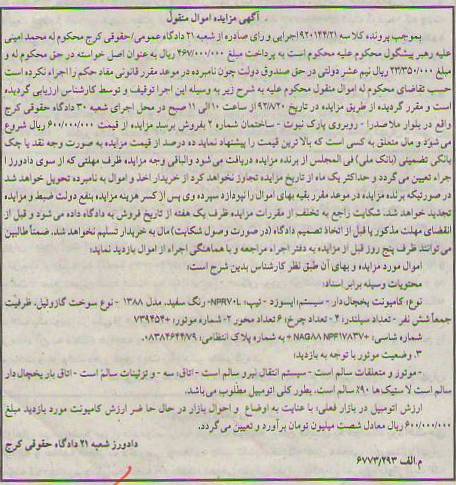 آگهی مزایده اموال منقول
بموجب پرونده کلاسه ۹۲۰۱۴۴/۲۱ اجرایی و رای صادره از شعبه ۲۱ دادگاه عمومی/حقوقی کرج محکوم له محمد امینی
علیه رهبر پیشگول محکوم علیه محکوم است به پرداخت مبلغ ۴۶۷/۰۰۰/۰۰۰ ریال به عنوان اصل خواسته در حق محکوم له و
مبلغ ۲۳/۳۵۰/۰۰۰ ریال نیم عشر دولتی در حق صندوق دولت چون نامبرده در موعد مقرر قانونی مفاد حکم را اجراء نکرده است
حسب تقاضای محکوم له اموال منقول محکوم علیه به شرح زیر به وسیله این اجرا توقیف و توسط کارشناس ارزیابی گردیده
است و مقرر گردیده از طریق مزایده در تاریخ ۹۲/۸/۲۰ از ساعت ۱۰ الی ۱۱ صبح در محل اجرای شعبه ۳۰ دادگاه حقوقی کرج
واقع در بلوار ملاصدرا - روبروی پارک نبوت - ساختمان شماره ۲ بفروش برسد مزایده از قیمت ۶۰۰/۰۰۰/۰۰۰ ریال شروع
می‌شود و مال متعلق به کسی است که بالاترین قیمت را پیشنهاد نماید ده درصد از قیمت مزایده به صورت وجه نقد یا چک
بانکی تضمینی (بانک ملی) فی المجلس از برنده مزایده دریافت می شود والباقی وجه مزایده ظرف مهلتی که از سوی دادورز ا
جراء تعیین می گردد و حداکثر یک ماه از تاریخ مزایده تجاوز نخواهد کرد از خریدار اخذ و اموال به نامبرده تحویل خواهد شد
در صورتیکه برنده مزایده در موعد مقرر بقیه بهای اموال را نپردازد سپرده وی پس از کسر هزینه مزایده بنفع دولت ضبط و مزایده
تجدید خواهد شد. شکایت راجع به تخلف از مقررات مزایده ظرف یک هفته از تاریخ فروش به دادگاه داده می شود و قبل از
انقضای مهلت مذکور یا قبل از اتخاذ تصمیم دادگاه (در صورت وصول شکایت) مال به خریدار تسلیم نخواهد شد. ضمناً طالبین
می توانند ظرف پنج روز قبل از مزایده به دفتر اجراء مراجعه و با هماهنگی اجراء از اموال بازدید نمایند:
اموال مورد مزایده و بهای آن طبق نظر کارشناس بدین شرح است:
محتویات وسیله برابر اسناد:
نوع: کامیونت یخچال دار - سیستم: ایسوزد - تیپ: NPR۷۰L - رنگ سفید، مدل ۱۳۸۸ - نوع سوخت گازوئیل. ظرفیت
جمعاً شش نفر - تعداد سیلندر: ۴ - تعداد چرخ: ۶ تعداد محور ۲- شماره موتور: ۷۳۹۴۵۴+
شماره شاسی: +NAG۸۸ NPF۱۷۸۳۷ + به شماره پلاک انتظامی: ۰۸۳۸۴۶۴۴۷۹.
۳. وضعیت موتور با توجه به بازدید:
- موتور و متعلقات سالم است - سیستم انتقال نیرو سالم است - اتاق: سه - و تزئینات سالم است - اتاق بار یخچال دار
سالم است لاستیک ها ۹۰٪ سالم است، بطور کلی اتومبیل مطلوب می باشد.
ارزش اتومبیل در بازار فعلی: با عنایت به اوضاع و احوال بازار در حال حا ضر ارزش کامیونت مورد بازدید مبلغ
۶۰۰/۰۰۰/۰۰۰ ریال معادل شصت میلیون تومان برآورد و تعیین می گردد.
دادورز شعبه ۲۱ دادگاه حقوقی کرج
م.الف ۶۷۷۳/۲۹۳